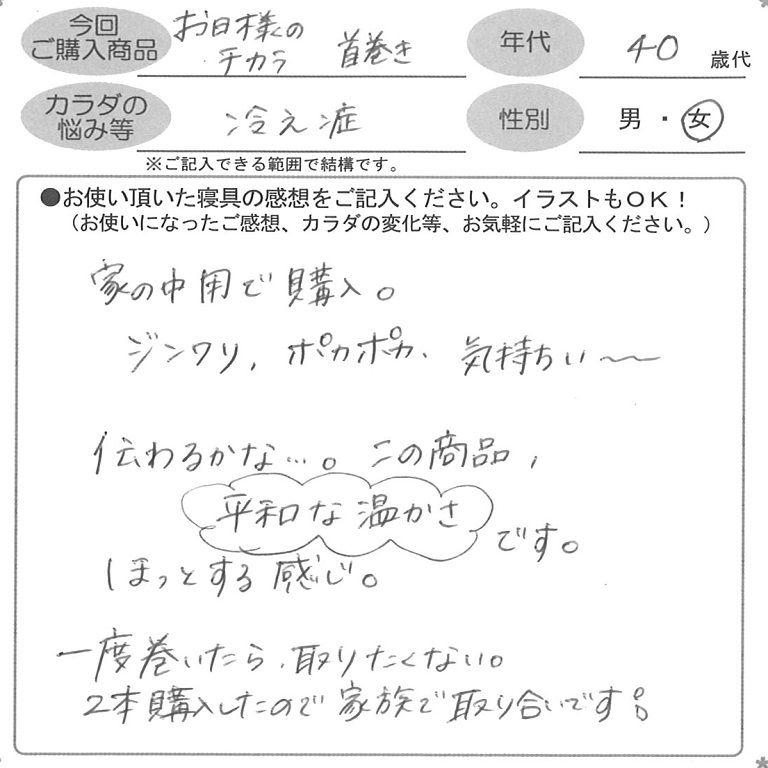 今回
ご購入商品
お日様の
チカラ 首巻き
年代
40 歳代
カラダの
悩み等
冷え症
性別
男・女
※ご記入できる範囲で結構です。
●お使い頂いた寝具の感想をご記入ください。イラストもOK！
（お使いになったご感想、カラダの変化等、お気軽にご記入ください。）
家の中用で購入。
ジンワリ、ポカポカ、気持ちい〜
伝わるかな…。この商品、
平和な温かさ
です。
ほっとする感じ。
一度巻いたら、取りたくない。
2本購入したので家族で取り合いです。